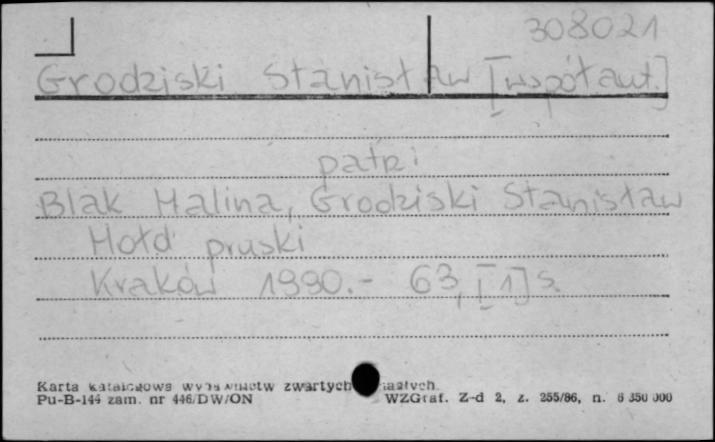 308021
Grodziski Stanisław [współaut.]
patrz
Blak Halina, Grodziski Stanisław
Hołd pruski
Kraków 1990.- 63, [1] s.
Karta katalogowa wydawnictw zwartych
Pu-B-144 zam. nr 446/DW/ON WZGraf. Z-d 2, z. 255/86, n. 6 350 000